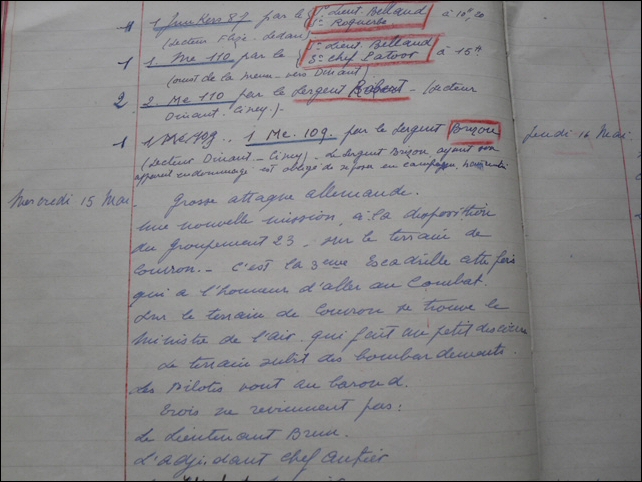 1 Junkers 87 par le S/Lieut Bellaud à 10h,20
(Secteur Flize - Sedan)
1 1 Me 110 par le S/Lieut. Bellaud à 15h
Sgt chef
(ouest de la Meuse - vers Dinant)
2 2 Me 110 par le Sergent Robert - (Secteur
Dinant - Ciney.)-
1 1 Me 109. par le Sergent Brison Jeudi 16 Mai
(Secteur Dinant - Ciney) - Le Sergent Brison, ayant son
appareil endommagé est obligé de se poser en campagne,
Mercredi 15 Mai
Grosse attaque allemande.
Une nouvelle mission, à la disposition
du Groupement 23, sur le terrain de
Couvron. - C'est la 3eme Escadrille cette fois
qui a l'honneur d'aller au combat.
Sur le terrain de Couvron se trouve le
Ministre de l'air qui fait un petit discours
Le terrain subit des bombardements.
Les Pilotes vont au baroud.
Trois ne reviennent pas:
Le Lieutenant Brun.
L'adjudant chef